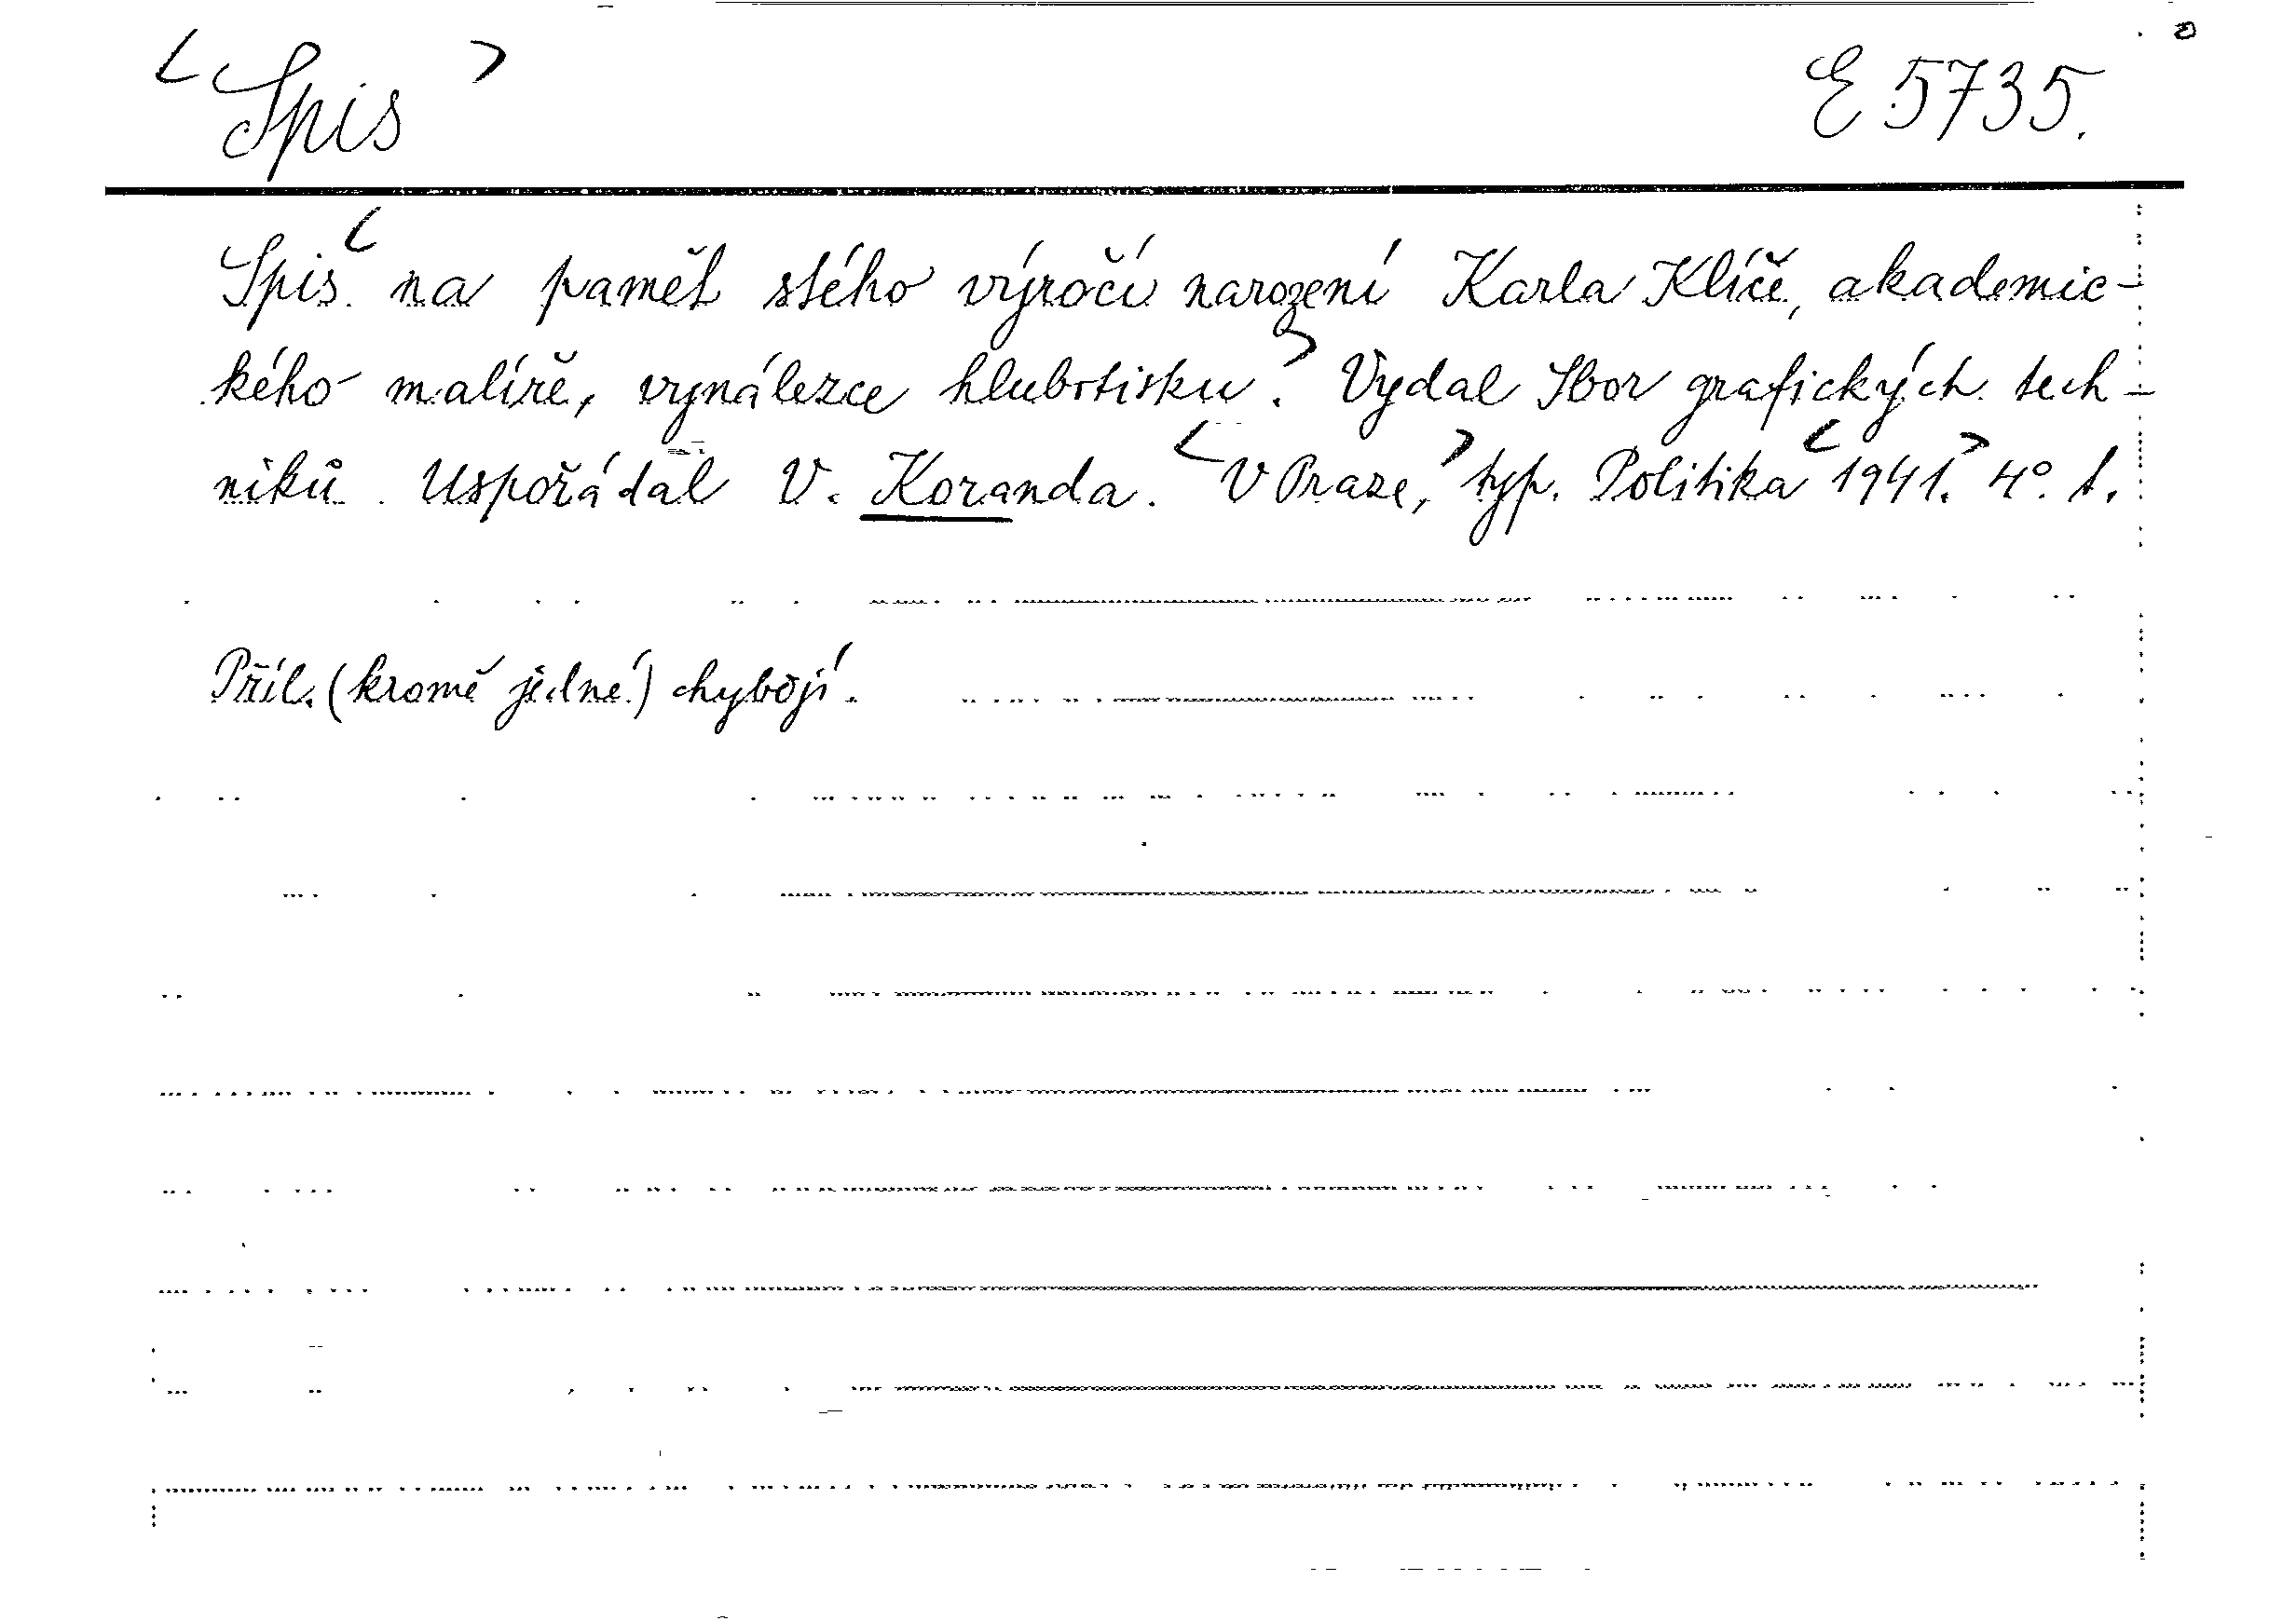 Spis E 5735.
Spis na paměť stého výročí narození Karla Klíče, akademic-
kého malíře, vynálezce hlubotisku. Vydal Sbor grafických tech-
niků. Uspořádal V. Koranda. V Praze, typ. Politika 1941. 4°.
Příl. (kromě jedné) chybějí.